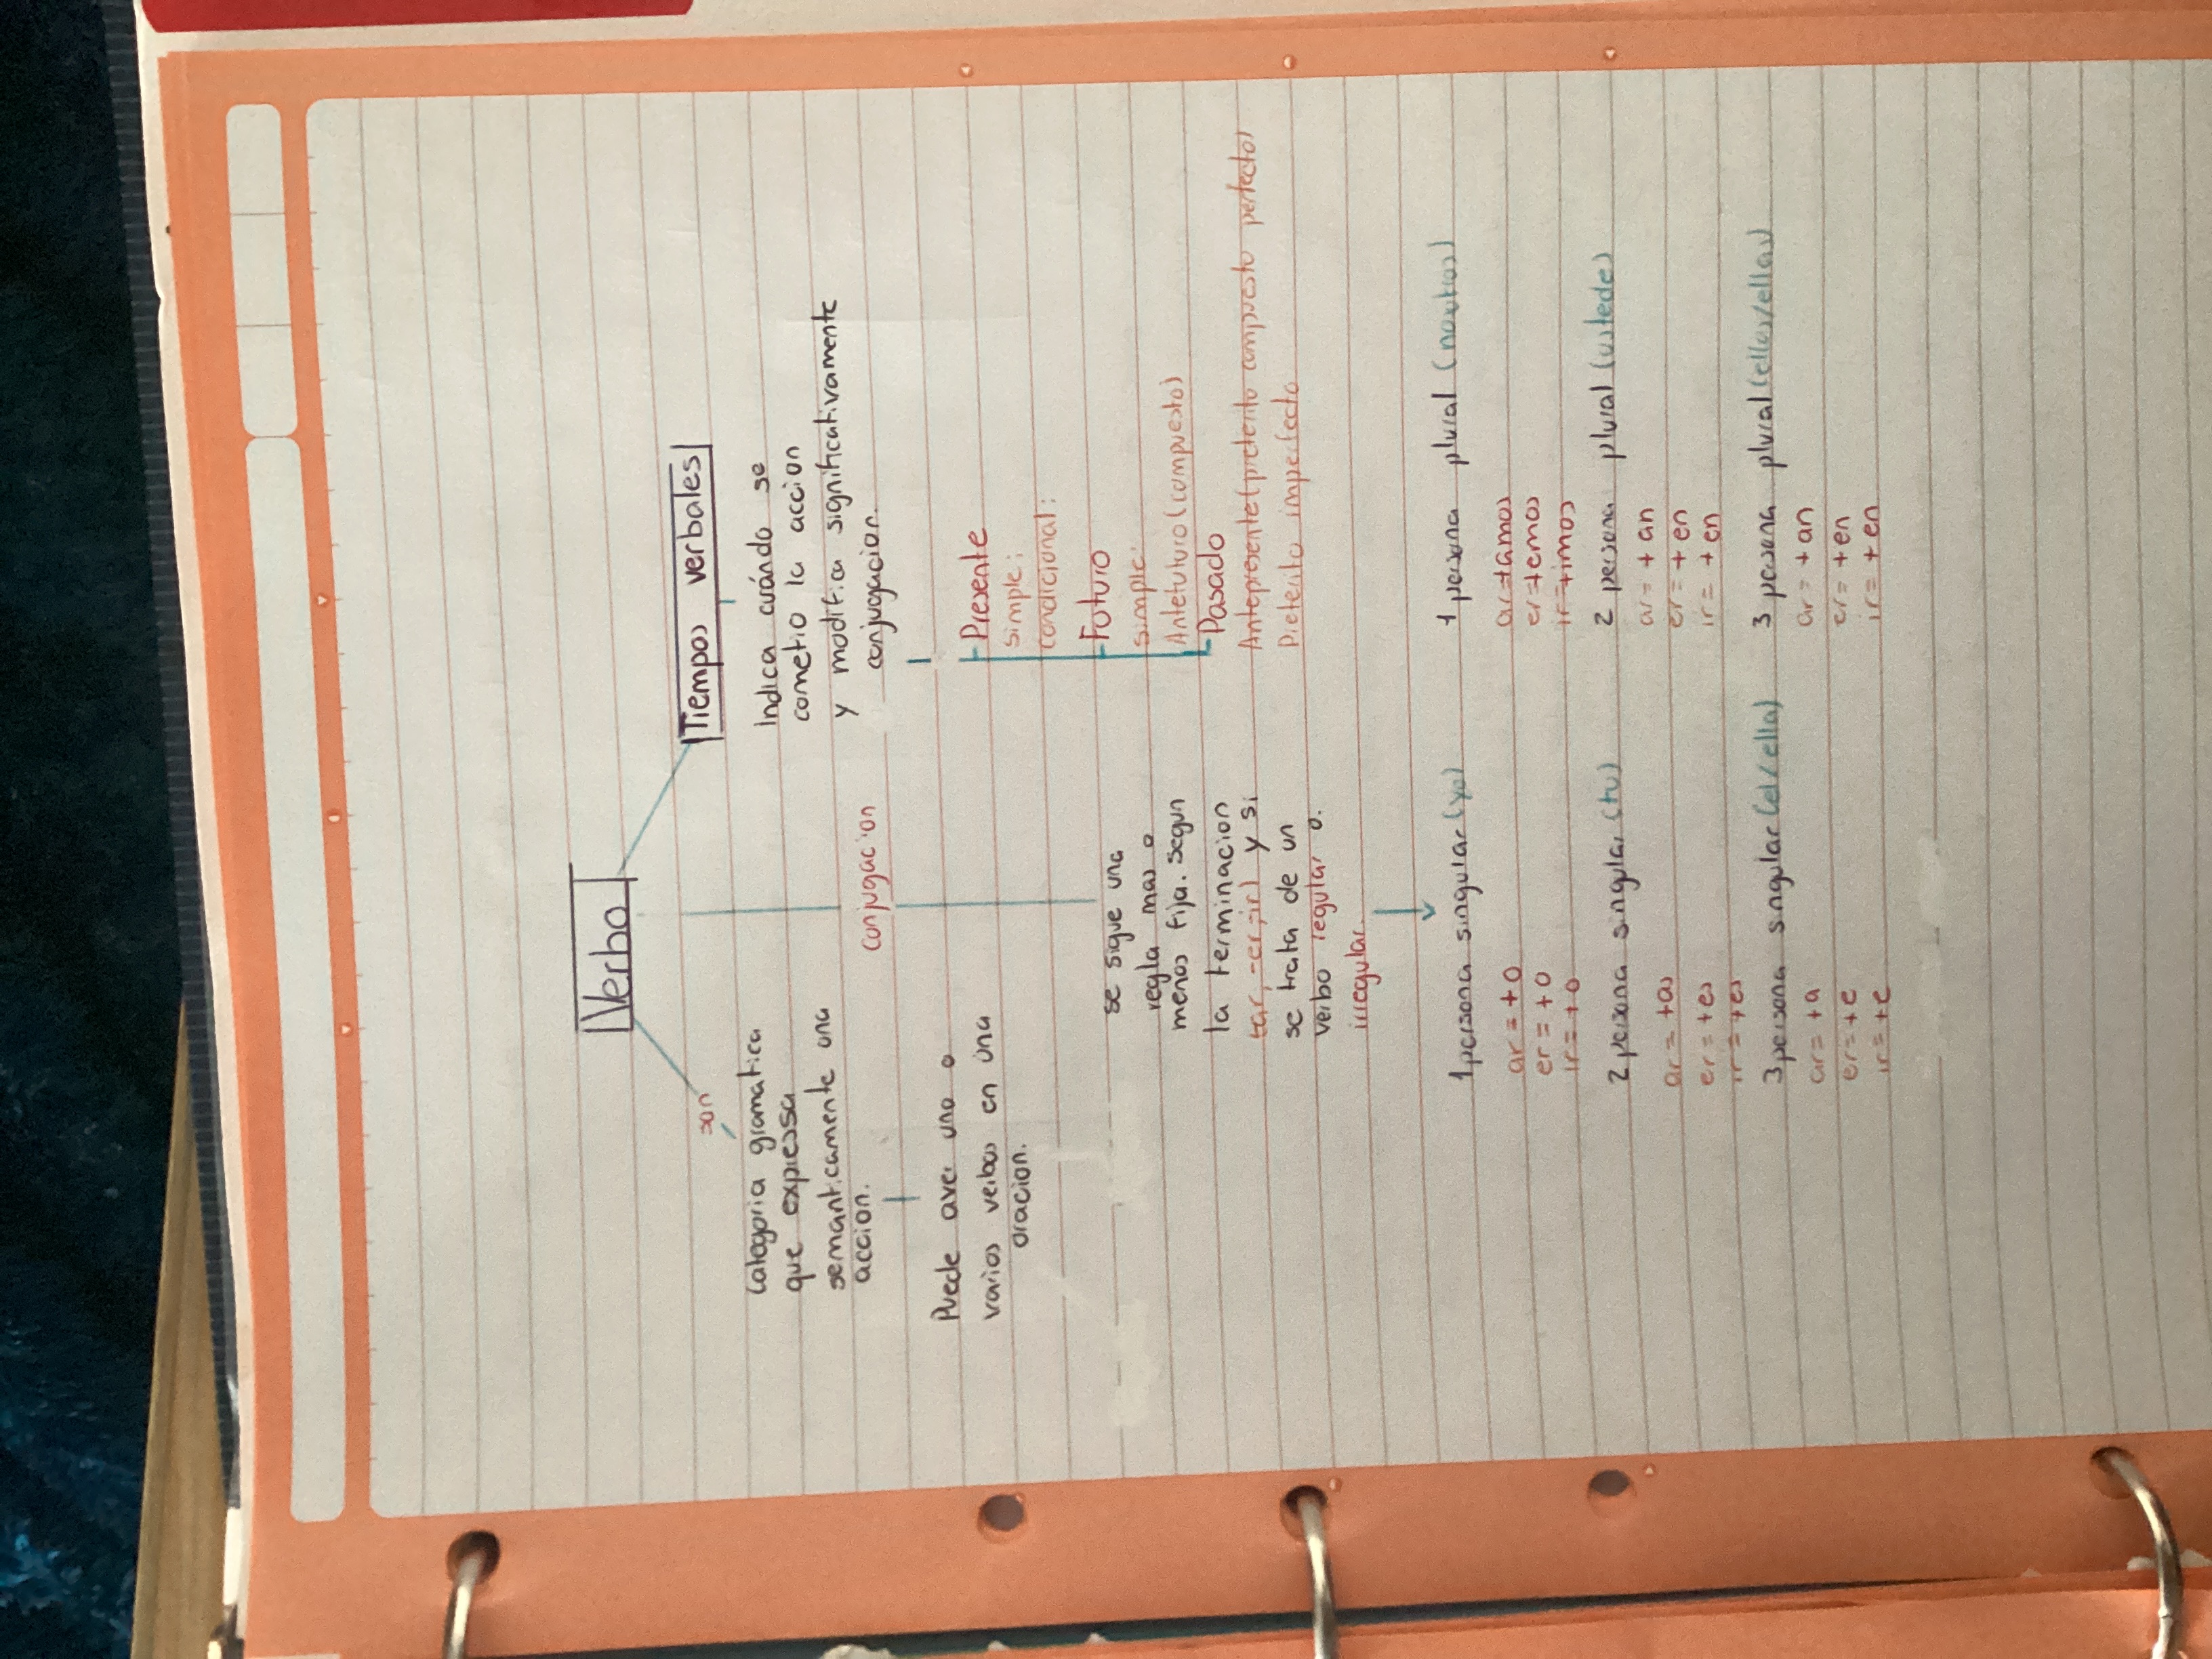 Verbo
son
Categoria gramatica
que expresa
semanticamente una
acción.
Puede aver uno o
varios verbos en una
oracion.
conjugacion
se sigue una
regla mas o
menos fija. segun
la terminacion
tar,-er,-ir) y si
se trata de un
verbo regular o.
irregular.
Tiempos verbales
Indica cuándo se
cometio la acción
y modifica significativamente
conjugacion.
Presente
simple:
condicional:
Futuro
simple:
Antefuturo (compuesto)
Pasado
Antepresente (preterito compuesto perfecto)
Preterito imperfecto
1 persona singular (yo)
ar = +o
er = +o
ir = +o
2 persona singular (tu)
ar = +as
er = +es
ir = +es
3 persona singular (el/ella)
ar = +a
er = +e
ir = +e
1 persona plural (nosotros)
ar=+amos
er=+emos
ir=+imos
2 persona plural (ustede)
ar = + an
er = + en
ir = + en
3 persona plural (ellos/ellas)
ar = + an
er = + en
ir = + en